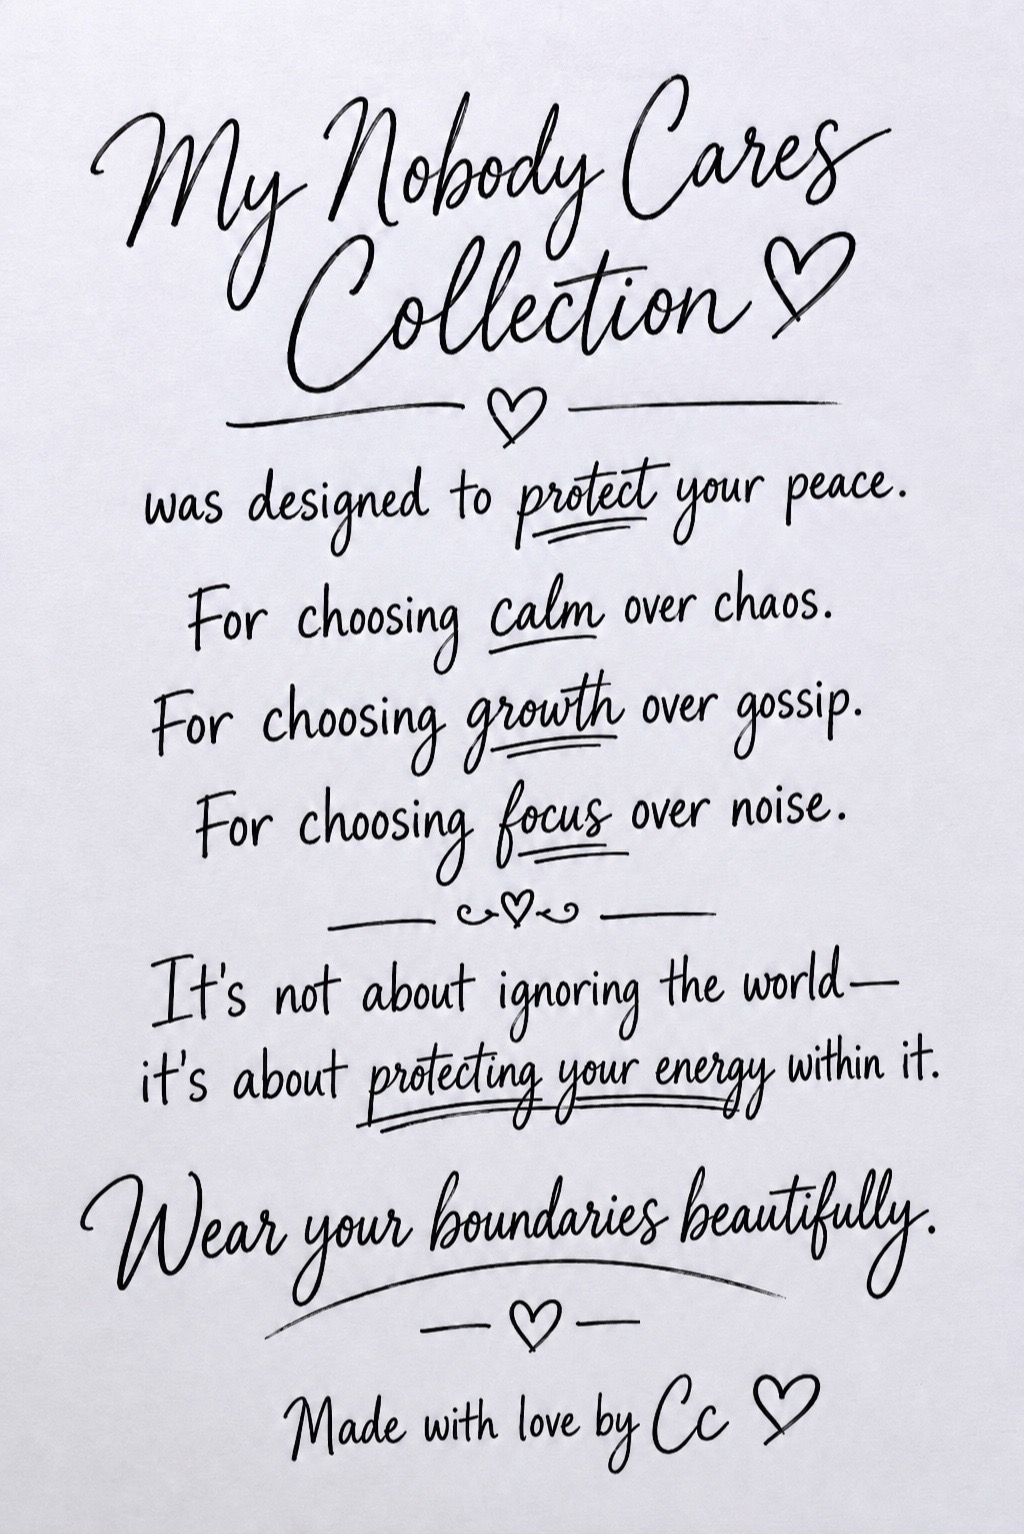 My Nobody Cares
Collection ♡
♡
was designed to protect your peace.
For choosing calm over chaos.
For choosing growth over gossip.
For choosing focus over noise.
♡
It's not about ignoring the world—
it's about protecting your energy within it.
Wear your boundaries beautifully.
♡
Made with love by Cc ♡